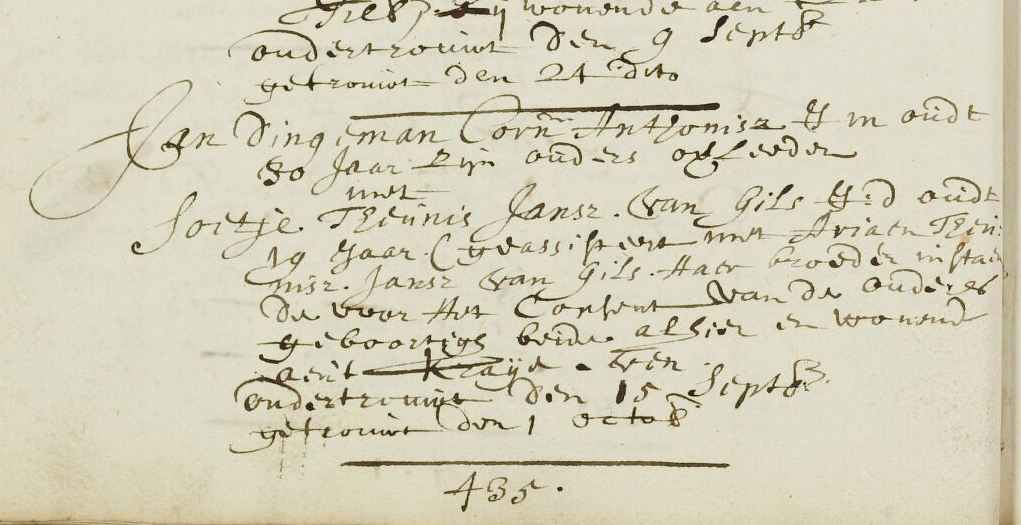 wonende aen
ondertrouwt Den 9 Septb
getrouwt den 24 dito
Jan Dingeman Corn Anthonisz J m oudt
30 Jaar Zijn ouders overleeden
met
Soetje Theunis Jansz. van Gils J:d oudt
19 Jaar. (geassisteert met Ariaen Theu:
nisz. Jansz van Gils. Haer broeder instaen
de voor Het Consent van de ouders
geboortigh beide alhier en wonend
aen't Kraije - ven
ondertrouwt Den 15 Septb
getrouwt den 1 octob
435.